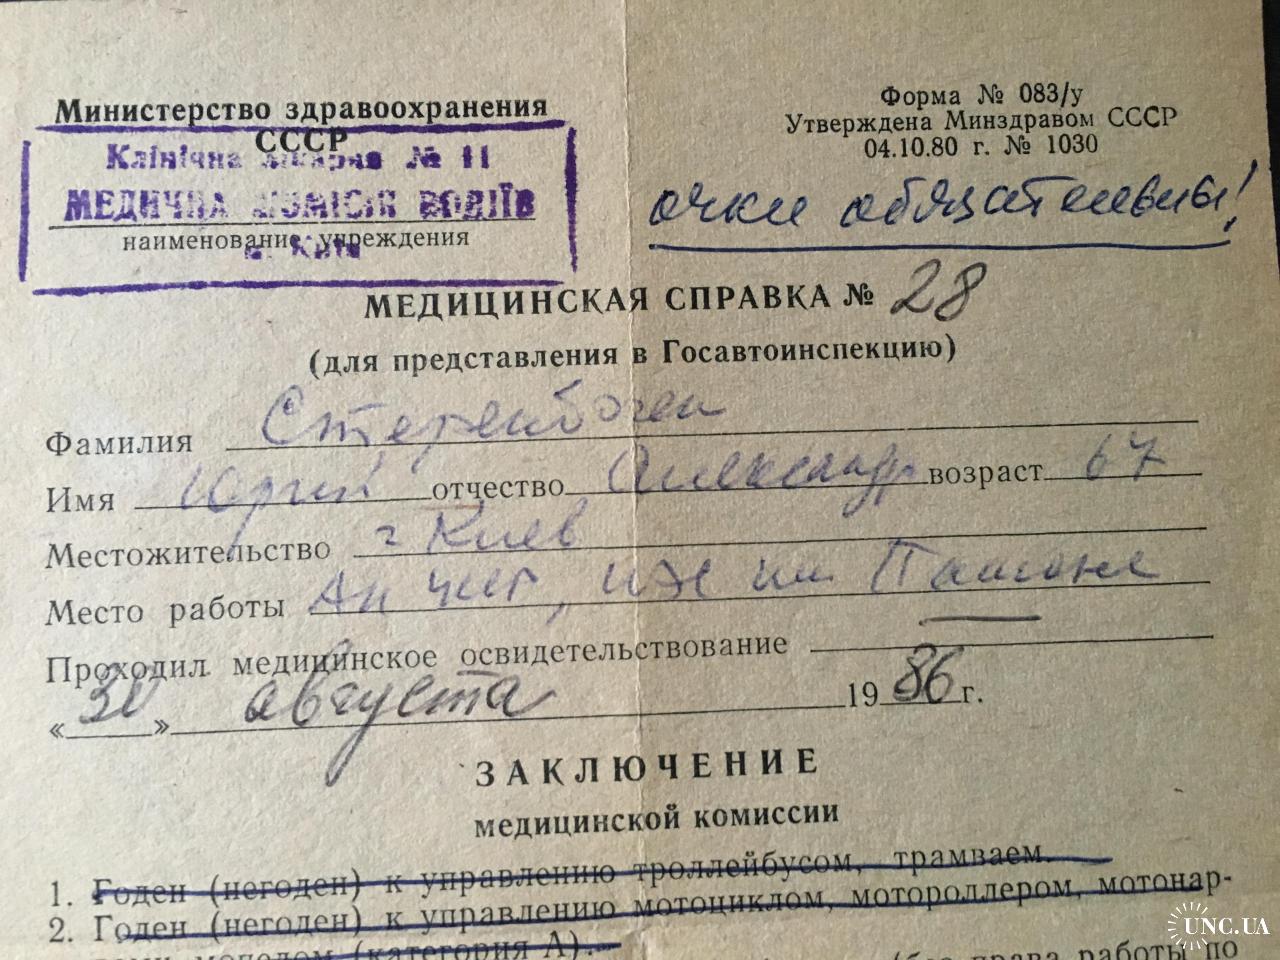 Министерство здравоохранения
СССР
Клінічна лікарня № 11
МЕДИЧНА КОМІСІЯ ВОДІЇВ
наименование учреждения
м. Київ
Форма № 083/у
Утверждена Минздравом СССР
04.10.80 г. № 1030
очки обязательны!
МЕДИЦИНСКАЯ СПРАВКА № 28
(для представления в Госавтоинспекцию)
Фамилия Стеренбоген
Имя Юрий отчество Александр возраст 67
Местожительство г Киев
Место работы Ан им Патона
Проходил медицинское освидетельствование
«30» августа 1986 г.
ЗАКЛЮЧЕНИЕ
медицинской комиссии
1. Годен (негоден) к управлению троллейбусом, трамваем.
2. Годен (негоден) к управлению мотоциклом, мотороллером, мотонар-
мопедом (категория А).
(без права работы по
UNC.UA